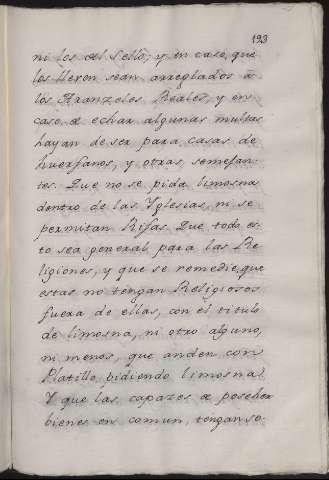 123
ni los del Sello; y en caso, que
los lleven sean arreglados a
los Aranzeles Reales, y en
caso de echar algunas multas
hayan de ser para casas de
huerfanos, y otras semejan-
tes. Que no se pida limosna
dentro de las Yglesias, ni se
permitan Rifas. Que todo es-
to sea general para las Re
ligiones, y que se remedie, que
estas no tengan Religiosos
fuera de ellas, con el titulo
de limosna, ni otro alguno,
ni menos, que anden con
Platillo pidiendo limosna.
Y que las capazes de poseher
bienes en comun, tengan so-